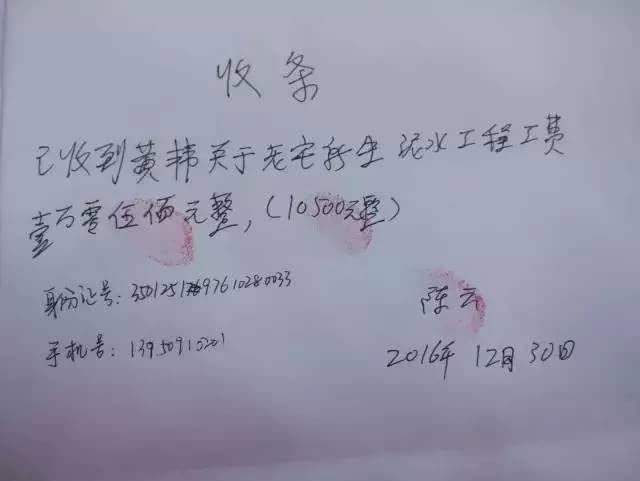 收条
已收到黄韩关于老宅新生泥水工程工费
壹万零伍佰元整,(10500元整)
身份证号:
陈云
手机号: 13950910201
2016年12月30日